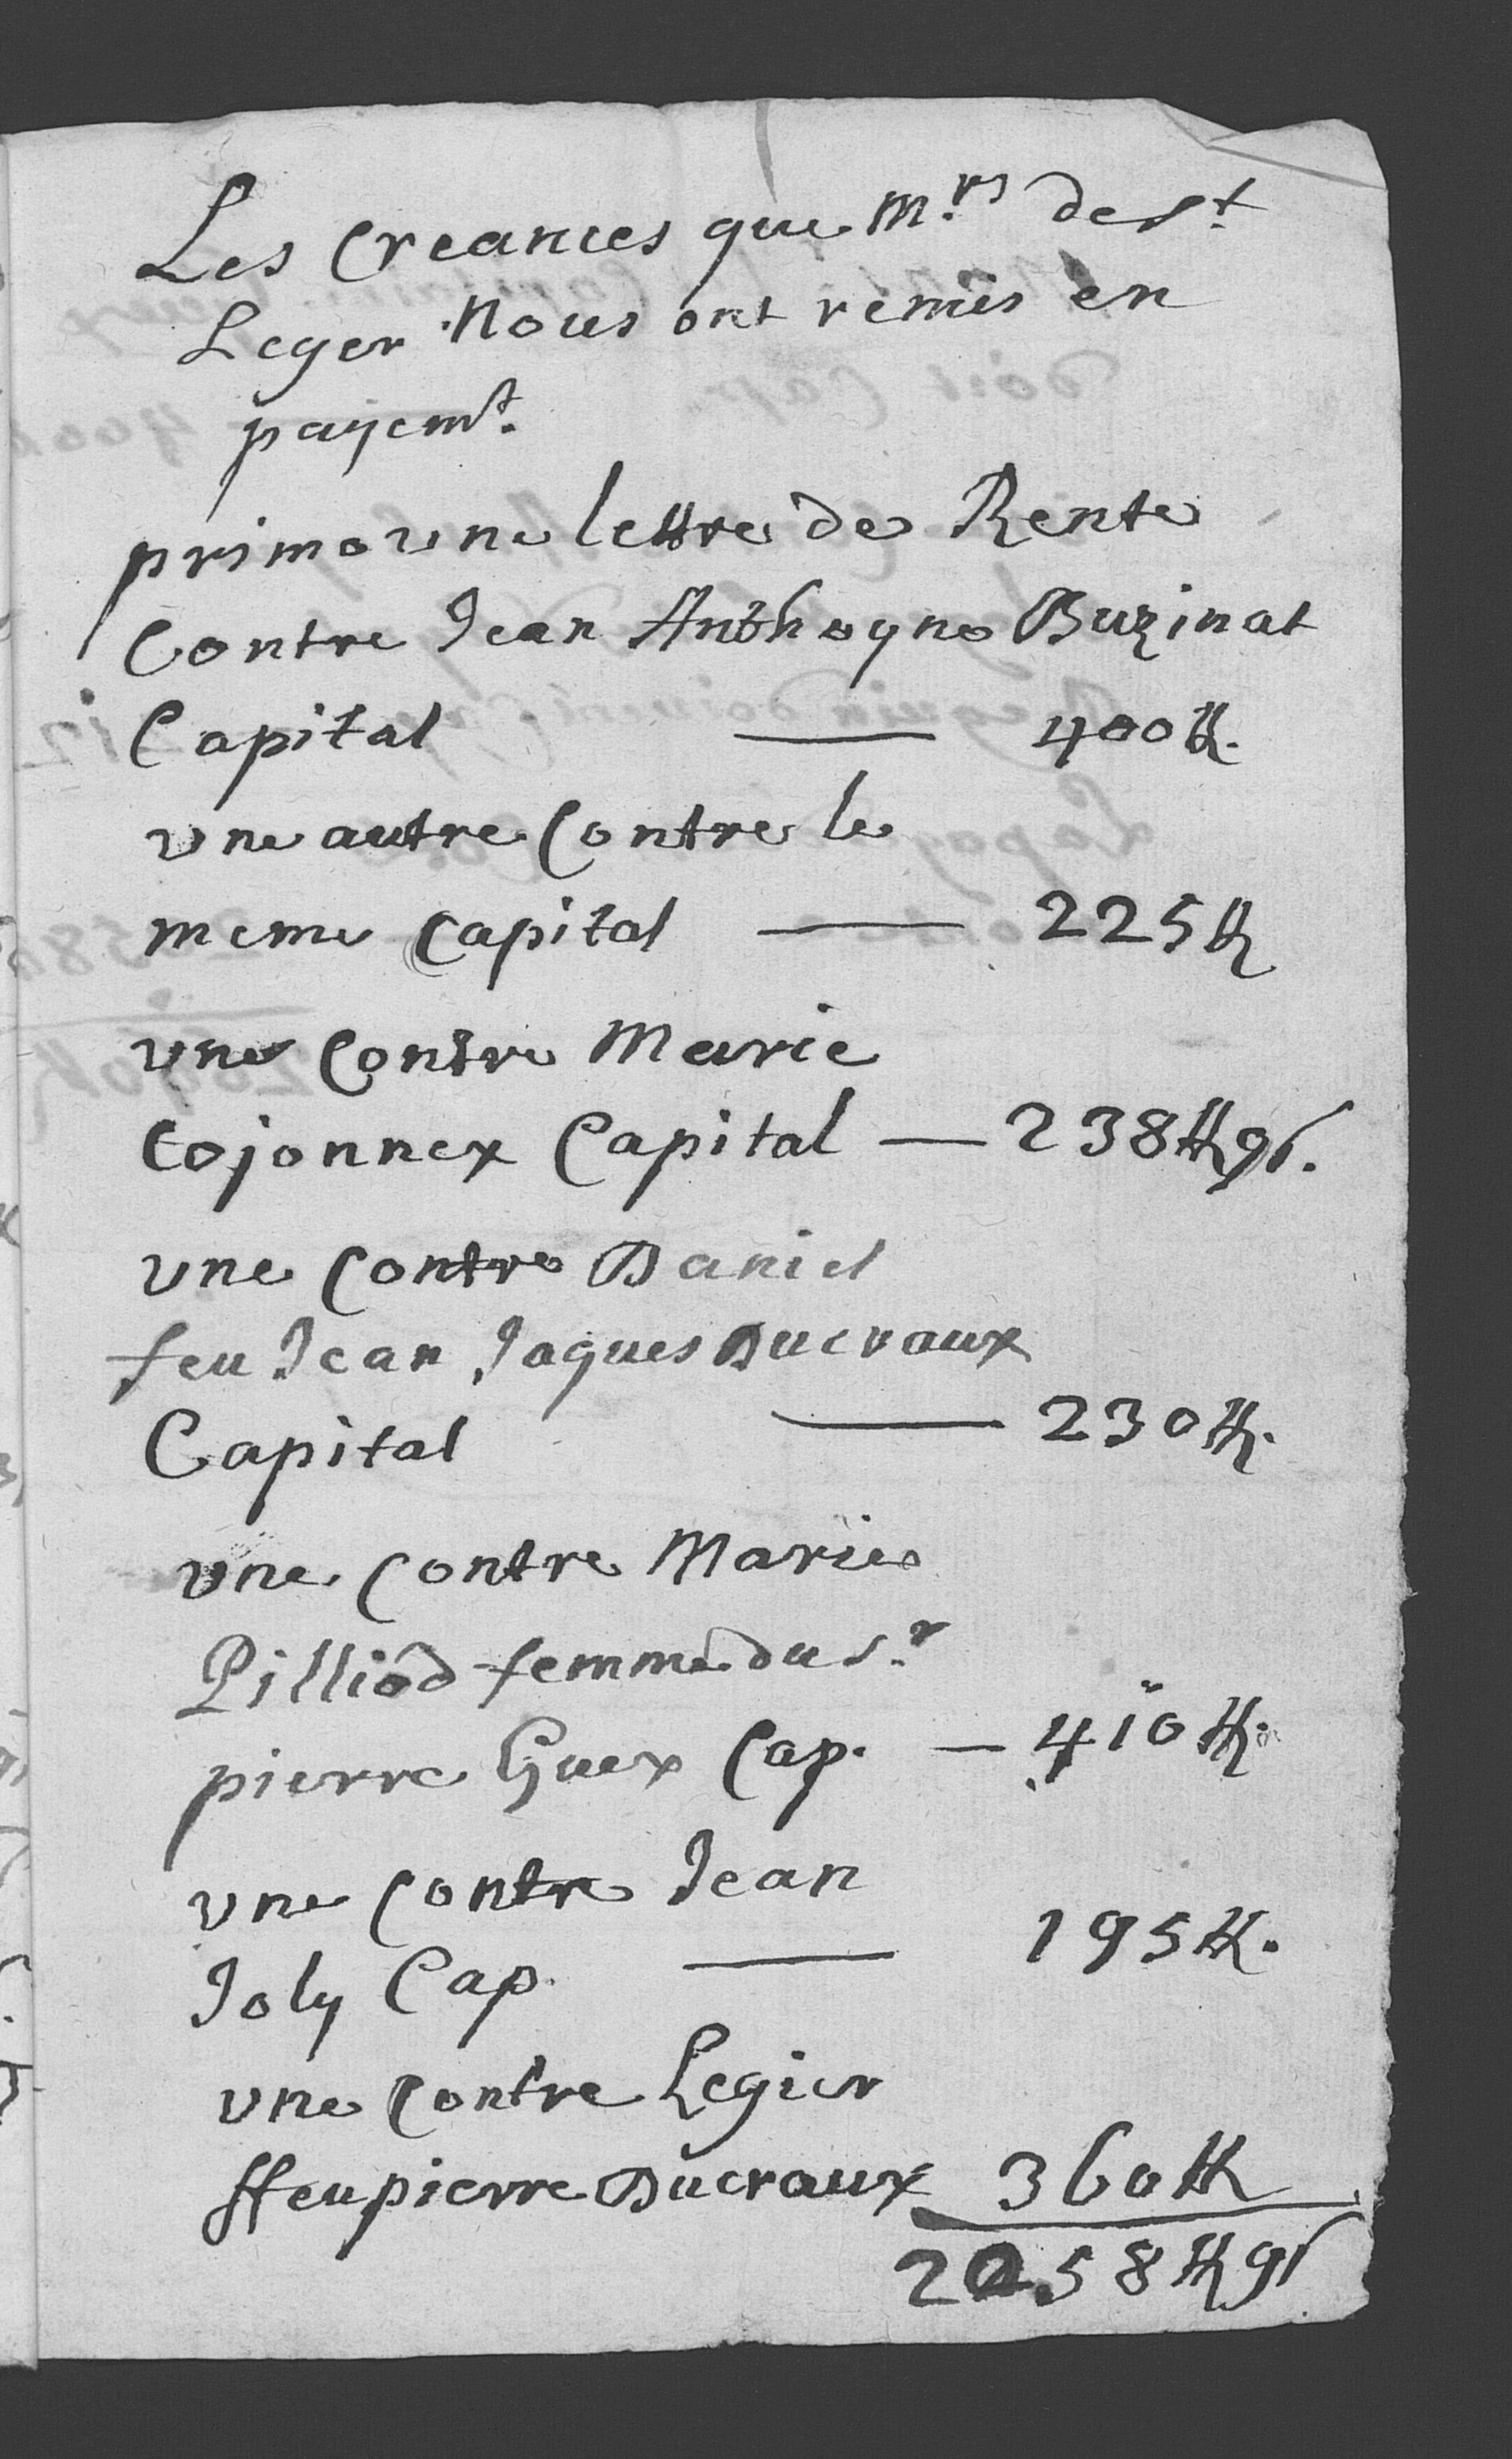 Les Creances que M.rs de St.
Leger Nous ont remis en
payemt.
primo une lettre de Rente
Contre Jean Anthoyne Buzinat
Capital — 400 ₶.
une autre Contre le
meme Capital — 225 ₶
une Contre Marie
Cojonnex Capital — 238 ₶ 9 s.
une Contre Daniel
feu Jean Jaques Ducraux
Capital — 230 ₶.
une Contre Marie
Pilliod femme du Sr.
pierre Guex Cap. — 410 ₶.
une Contre Jean
Joly Cap. — 195 ₶.
une Contre Legier
ffeu pierre Ducraux 360 ₶
2058 ₶ 9 s